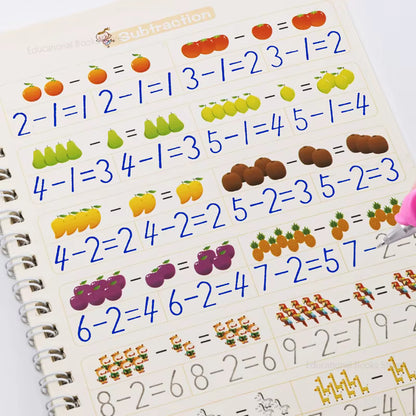 Educational Books
Subtraction
2-1=1 2-1=1 3-1=2 3-1=2
4-1=3 4-1=3 5-1=4 5-1=4
4-2=2 4-2=2 5-2=3 5-2=3
6-2=4 6-2=4 7-2=5 7-2
8-2=6 8-2=6 9-2=7 9-2=
Educational Books